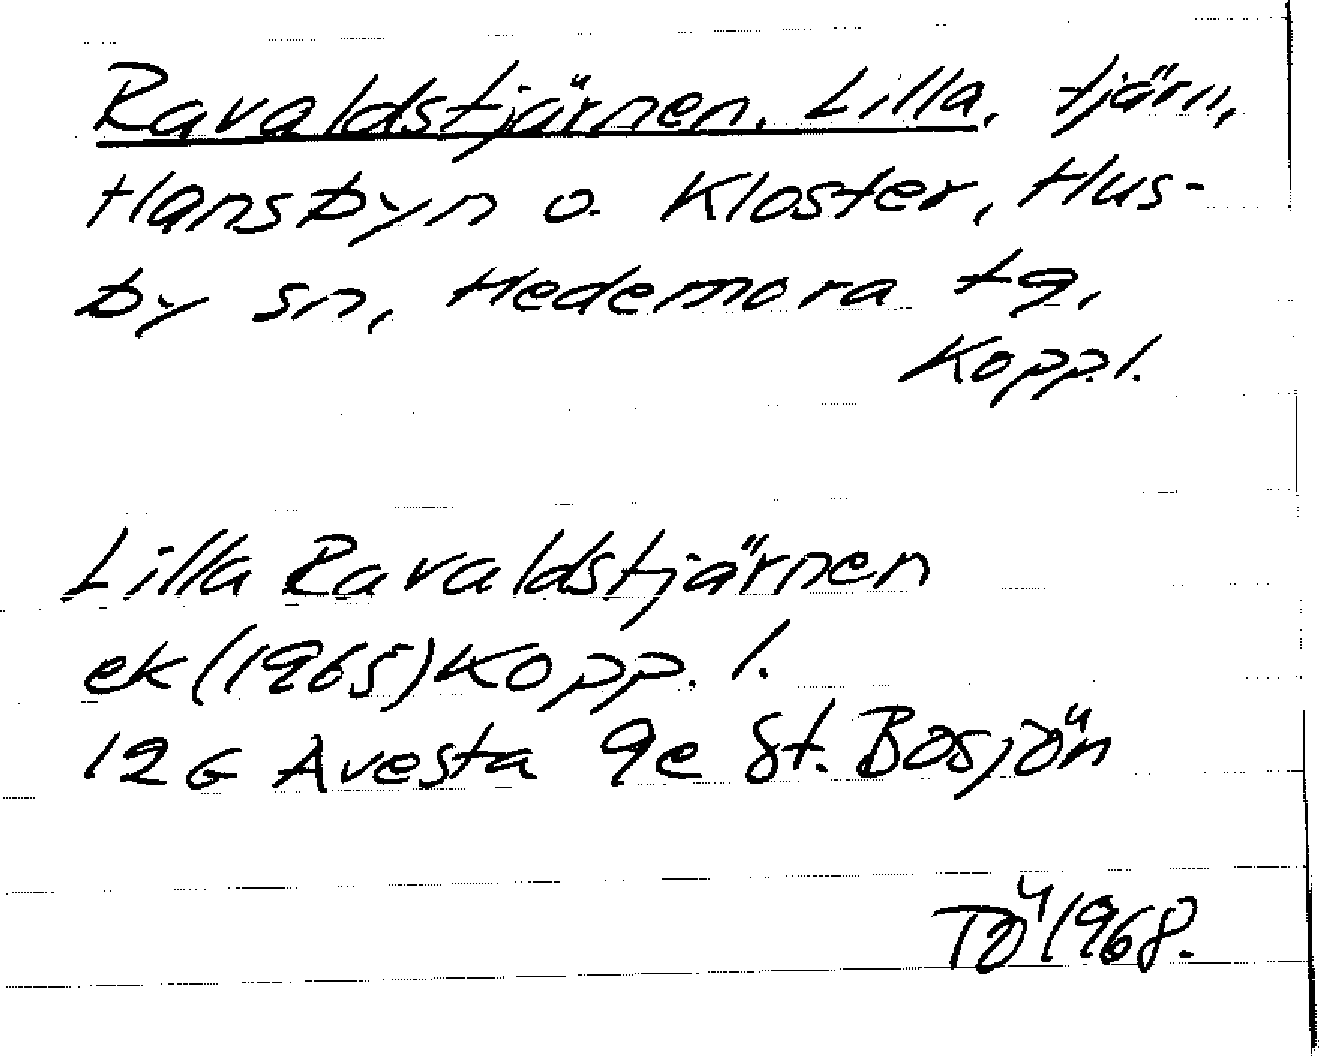 Ravaldstjärnen, Lilla, tjärn,
Hansbyn o. Kloster, Hus-
by sn, Hedemora tg,
Kopp.l.
Lilla Ravaldstjärnen
ek (1965) Kopp. l.
12 G Avesta 9e St. Bosjön
TÖ 1968.